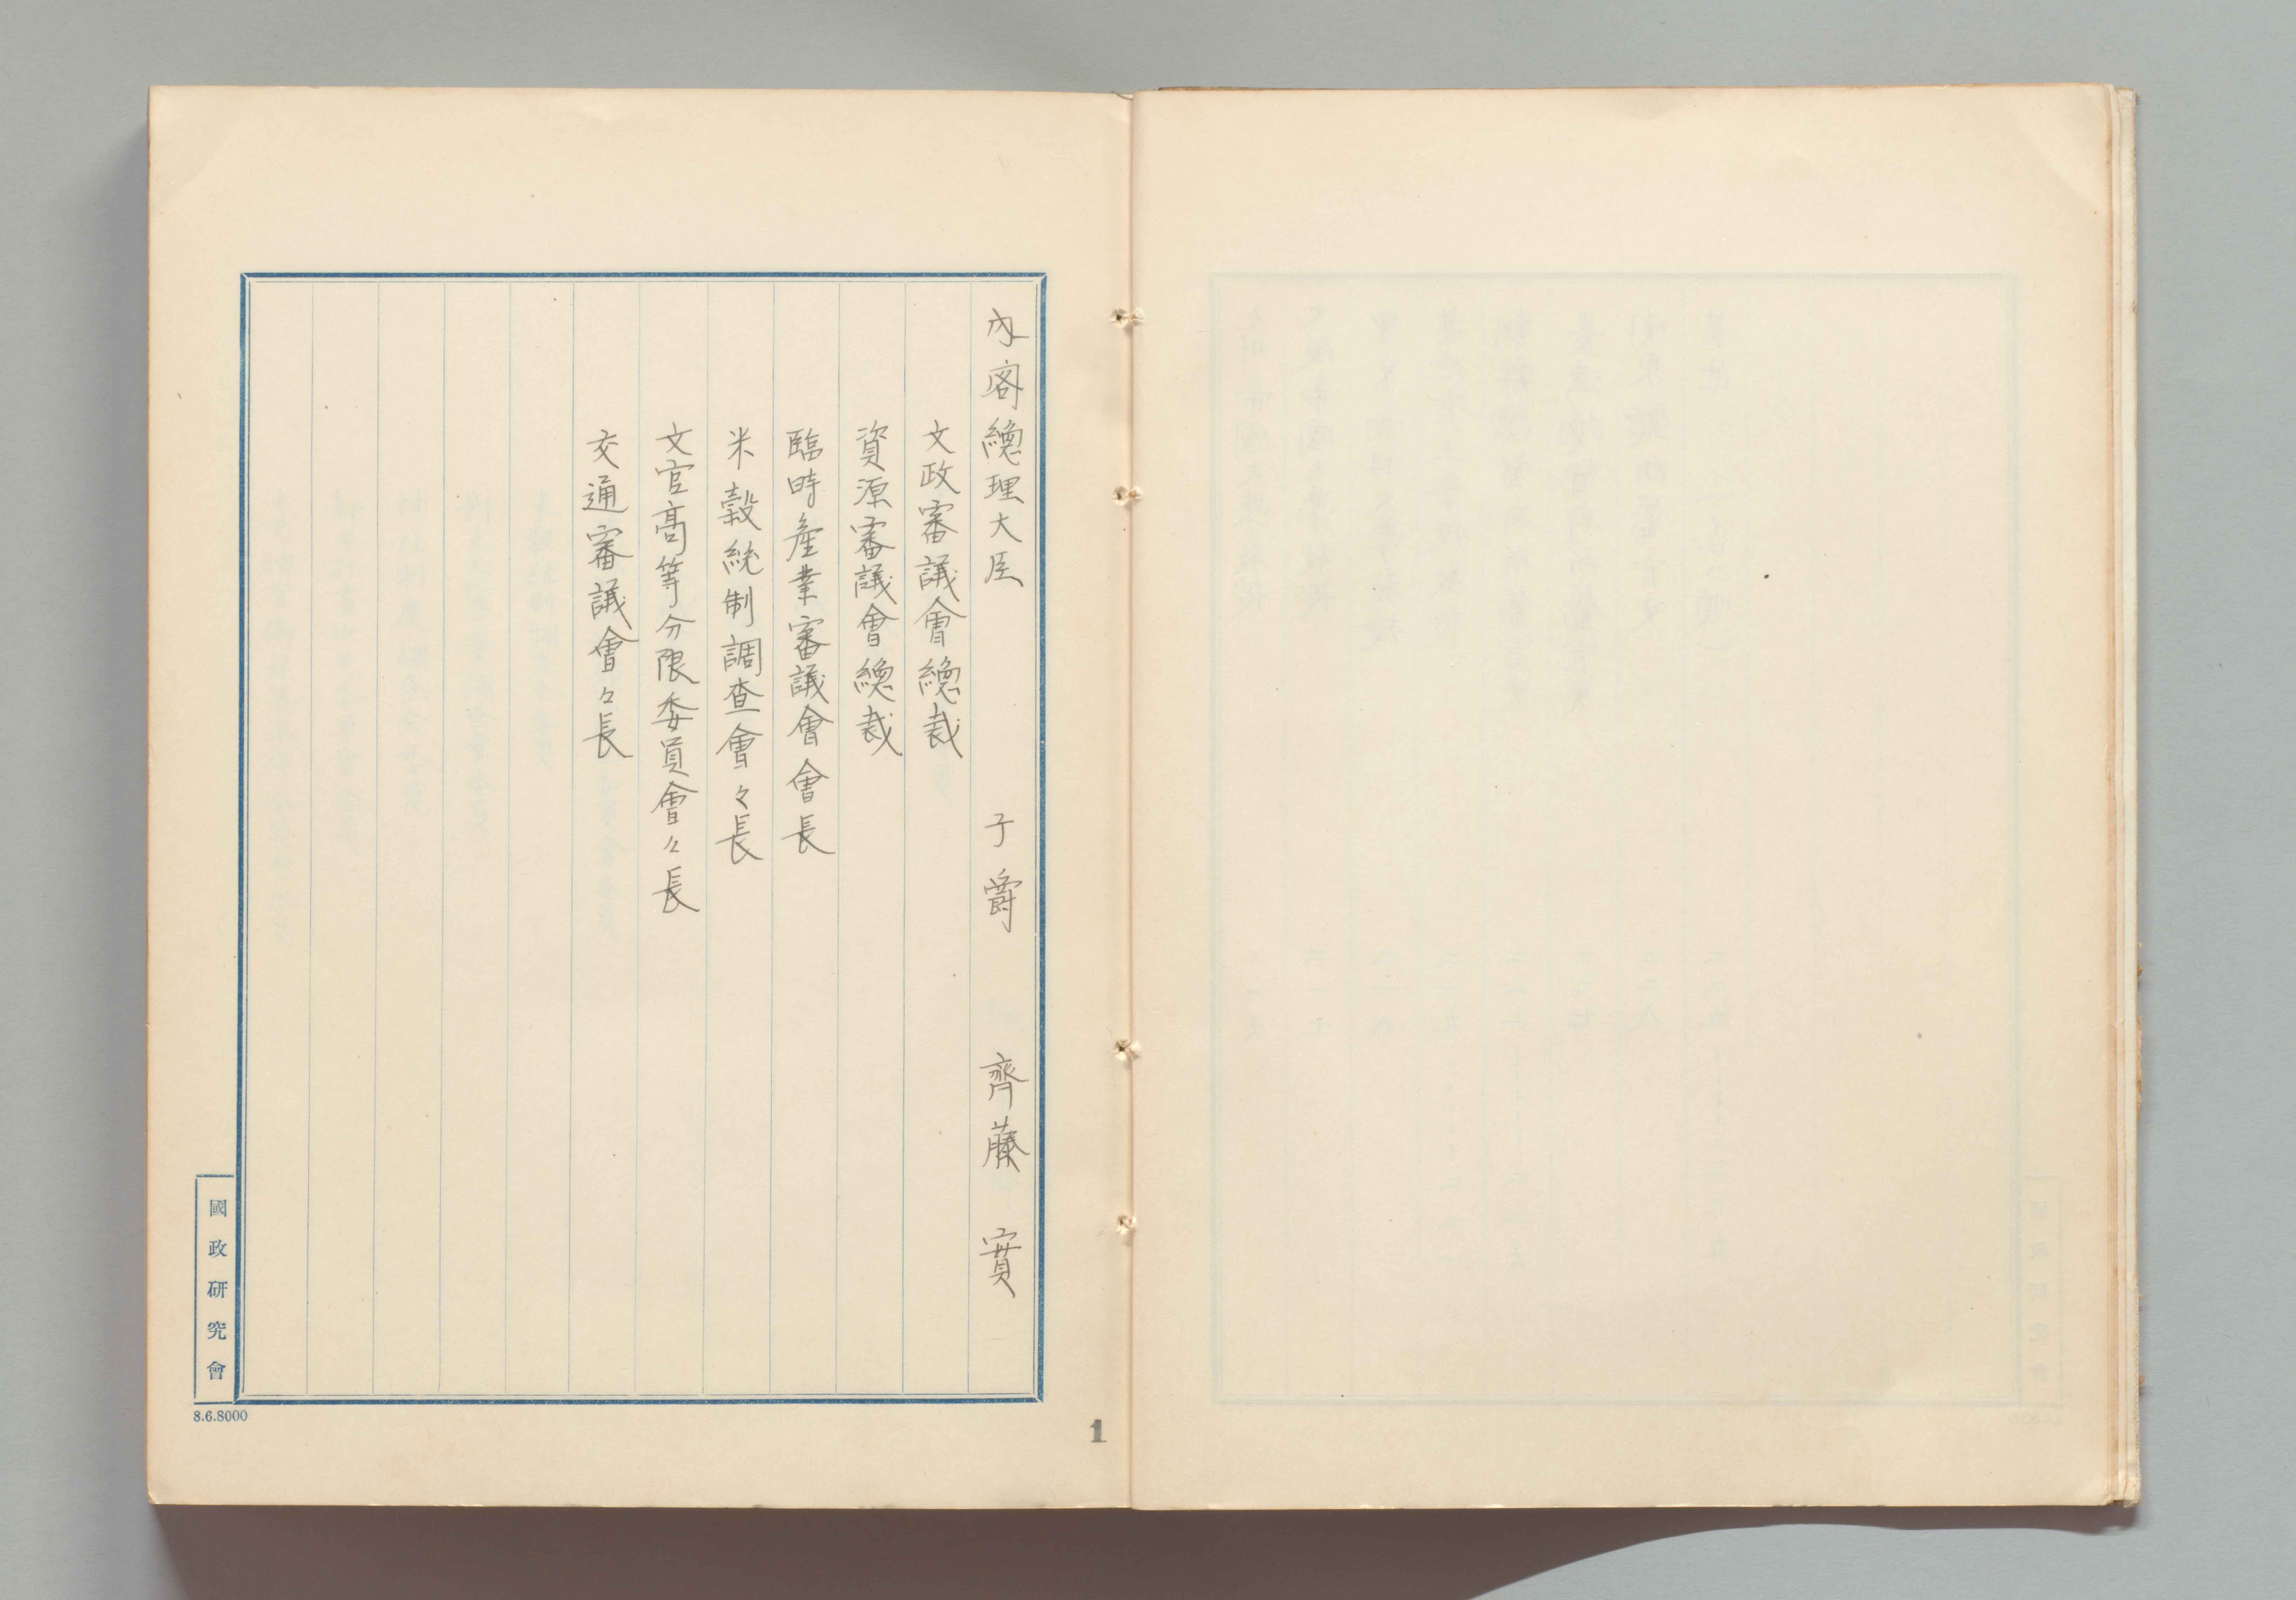 内閣總理大臣　子爵　齊藤實
文政審議會總裁
資源審議會總裁
臨時産業審議會會長
米穀統制調査會々長
文官高等分限委員會々長
交通審議會々長
國政研究會
8.6.8000
1